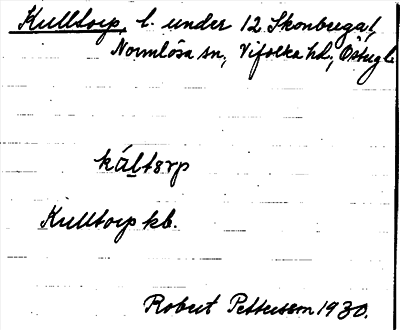 Kulltorp, l. under 12 Skonberga,
Normlösa sn, Vifolka hd, Östergl.
kált8rp
Kulltorp kb.
Robert Pettersson 1930.